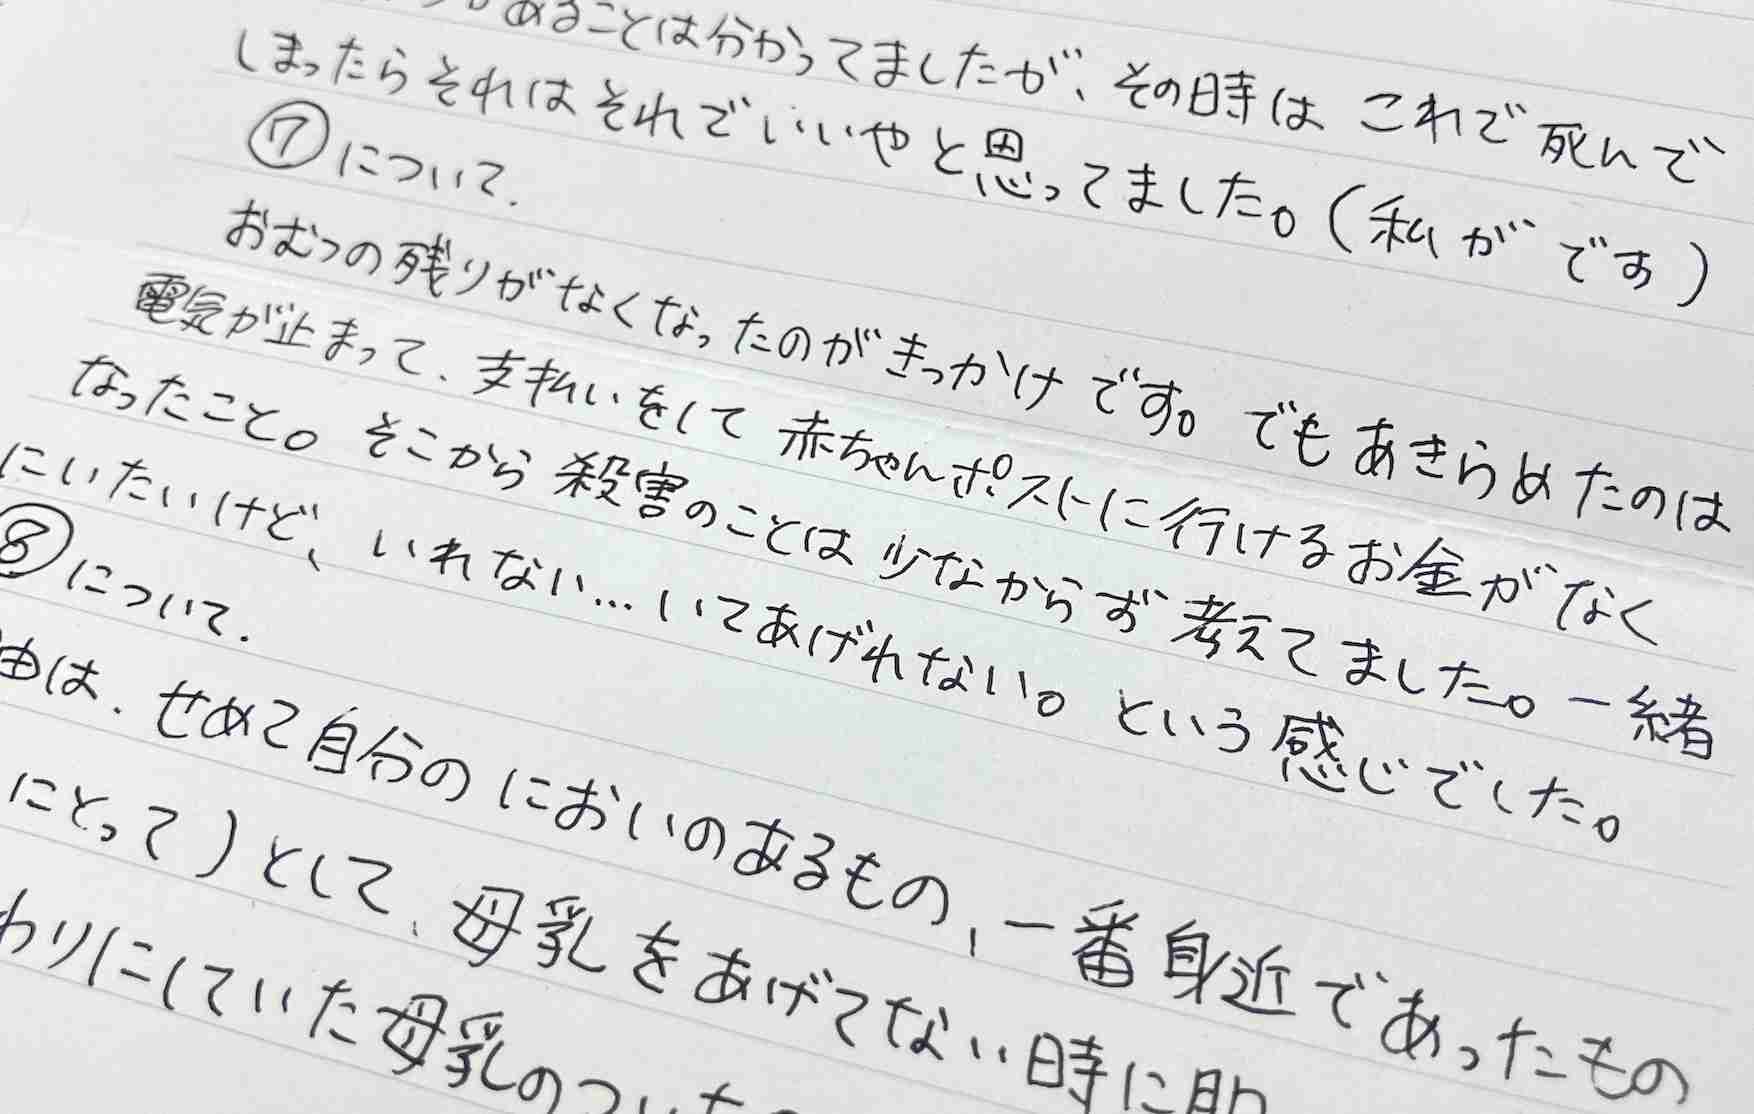 あることは分かってましたが、その時は これで死んで
しまったらそれはそれでいいやと思ってました。(私がです)
⑦について.
おむつの残りがなくなったのがきっかけです。でもあきらめたのは
電気が止まって、支払いをして赤ちゃんポストに行けるお金がなく
なったこと。そこから殺害のことは少なからず考えてました。一緒
にいたいけど、いれない…いてあげれない。という感じでした。
⑧について.
由は、せめて自分のにおいのあるもの、一番身近であったもの
にとって)として、母乳をあげてない時に
わりにしていた母乳のついた